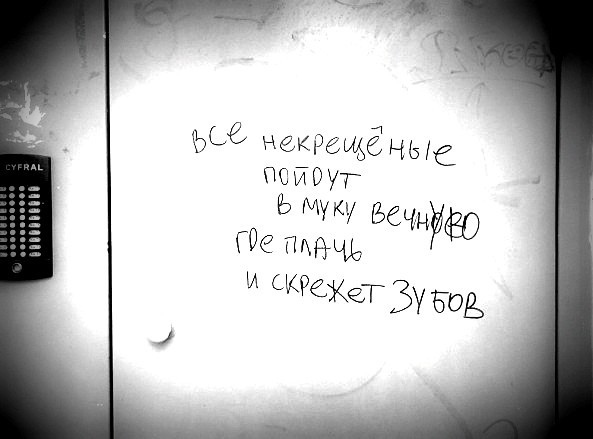 CYFRAL
все некрещёные
пойдут
в муку вечную
где плачь
и скрежет зубов